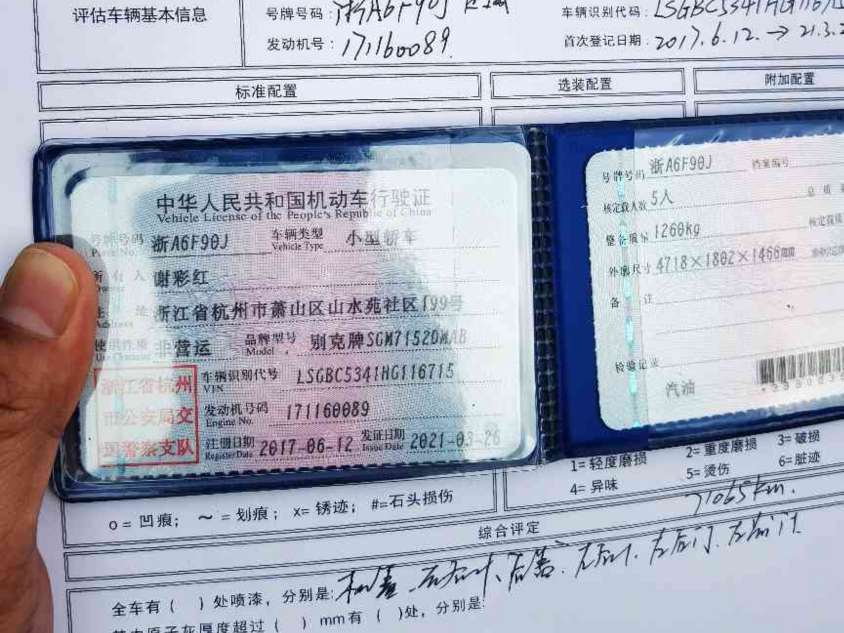 评估车辆基本信息
号牌号码: 浙A6F90J
车辆识别代码: LSGBC5341HG116715
发动机号: 171160089.
首次登记日期: 2017.6.12. → 21.3.2
标准配置
选装配置
附加配置
中华人民共和国机动车行驶证
Vehicle License of the People's Republic of China
号牌号码 浙A6F90J 车辆类型 小型轿车
Plate No. Vehicle Type
所有人 谢彩红
Owner
住址 浙江省杭州市萧山区山水苑社区199号
Address
使用性质 非营运 品牌型号 别克牌SGM7152DMAB
Use Character Model
浙江省杭州
市公安局交
通警察支队
车辆识别代号 LSGBC5341HG116715
VIN
发动机号码 171160089
Engine No.
注册日期 2017-06-12 发证日期 2021-03-26
Register Date Issue Date
号牌号码 浙A6F90J 档案编号
核定载人数 5人 总质
整备质量 1260kg 核定载质
外廓尺寸 4718×1802×1466
备注
检验记录
汽油
1=轻度磨损 2=重度磨损 3=破损
4=异味 5=烫伤 6=脏迹
o=凹痕; ～=划痕; x=锈迹; #=石头损伤
71065km.
综合评定
全车有( )处喷漆,分别是:
漆厚度超过( )mm有( )处,分别是: